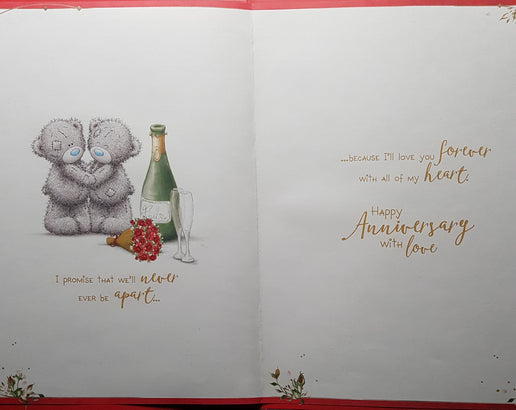 I PROMISE THAT WE'LL never
EVER BE apart...
...BECAUSE I'LL LOVE YOU forever
WITH ALL OF MY heart.
Happy
Anniversary
WITH love